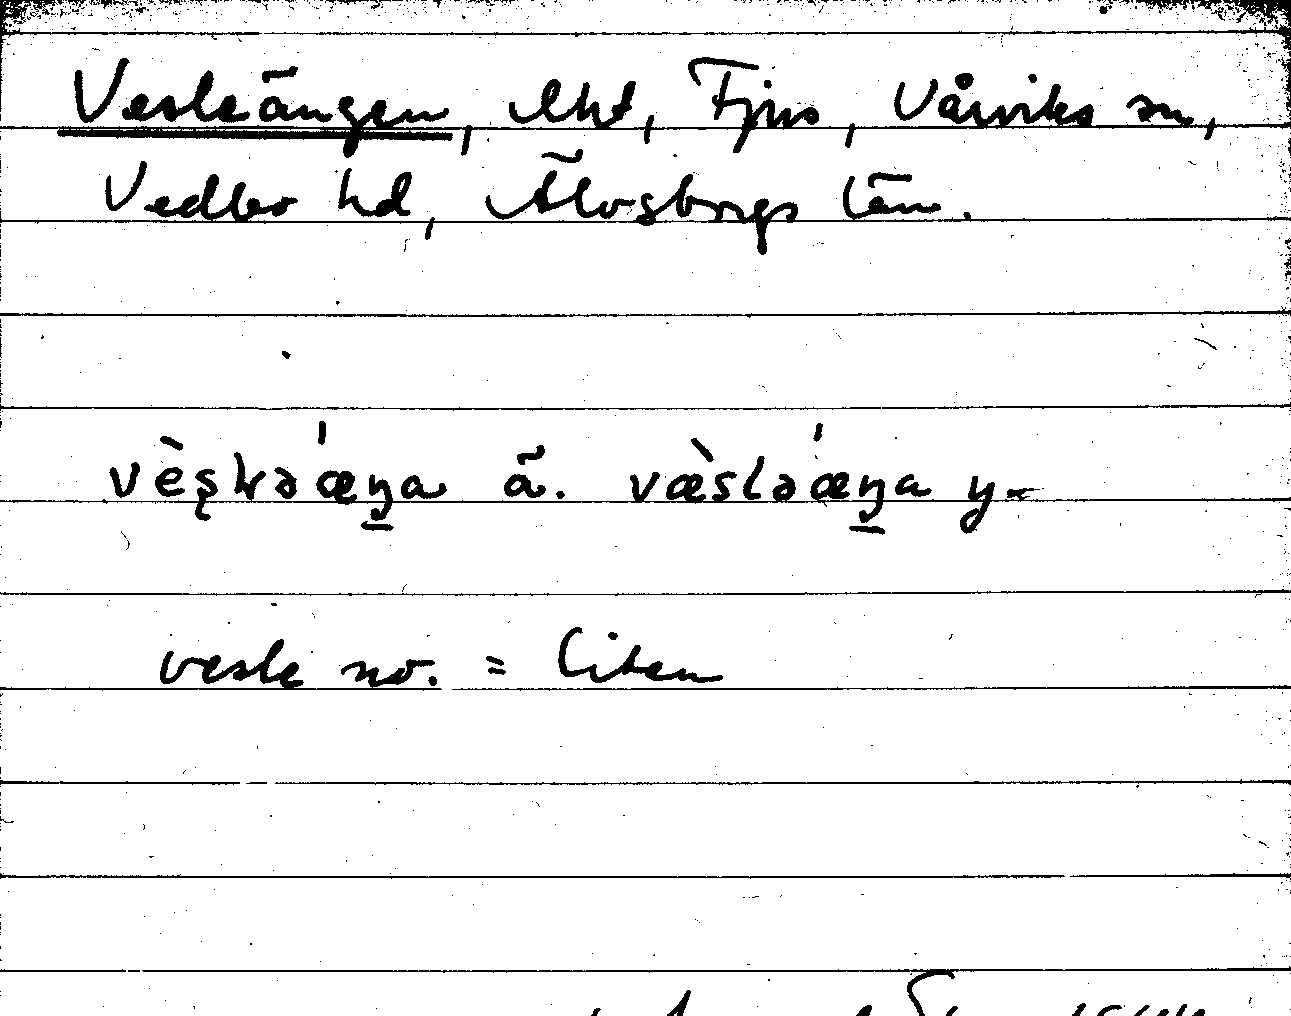 Vesleängen, lht, Fjus, Vårviks sn,
Vedbo hd, Älvsborgs län.
vèşləˈæŋa ä. væ̀sləˈæŋa y-
vesle no. = liten